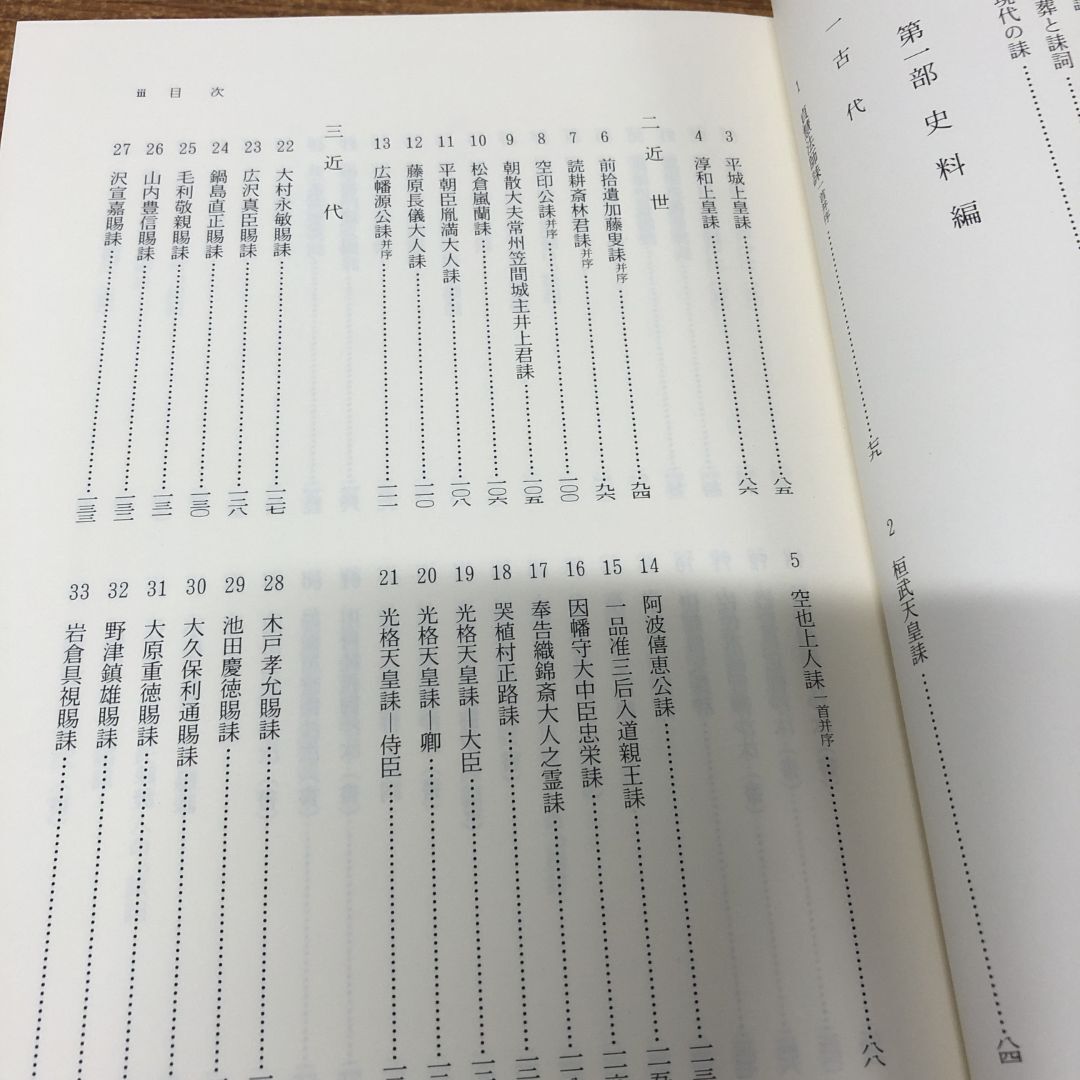 葬と誄詞……
現代の誄……
第一部 史料編
一 古代
法師誄 一首并序……七九
2 桓武天皇誄……八四
iii 目 次
3 平城上皇誄……八五
4 淳和上皇誄……八六
5 空也上人誄 一首并序……八八
二 近世
6 前拾遺加藤叟誄 并序……九四
7 読耕斎林君誄 并序……九六
8 空印公誄 并序……一〇〇
9 朝散大夫常州笠間城主井上君誄……一〇五
10 松倉嵐蘭誄……一〇六
11 平朝臣胤満大人誄……一〇八
12 藤原長儀大人誄……一一〇
13 広幡源公誄 并序……一一一
14 阿波僖恵公誄……一一三
15 一品准三后入道親王誄……
16 因幡守大中臣忠栄誄……
17 奉告織錦斎大人之霊誄……
18 哭植村正路誄……
19 光格天皇誄―大臣……
20 光格天皇誄―卿……
21 光格天皇誄―侍臣……
三 近代
22 大村永敏賜誄……一二七
23 広沢真臣賜誄……一二八
24 鍋島直正賜誄……一三〇
25 毛利敬親賜誄……一三一
26 山内豊信賜誄……一三二
27 沢宣嘉賜誄……一三三
28 木戸孝允賜誄……
29 池田慶徳賜誄……
30 大久保利通賜誄……
31 大原重徳賜誄……
32 野津鎮雄賜誄……
33 岩倉具視賜誄……